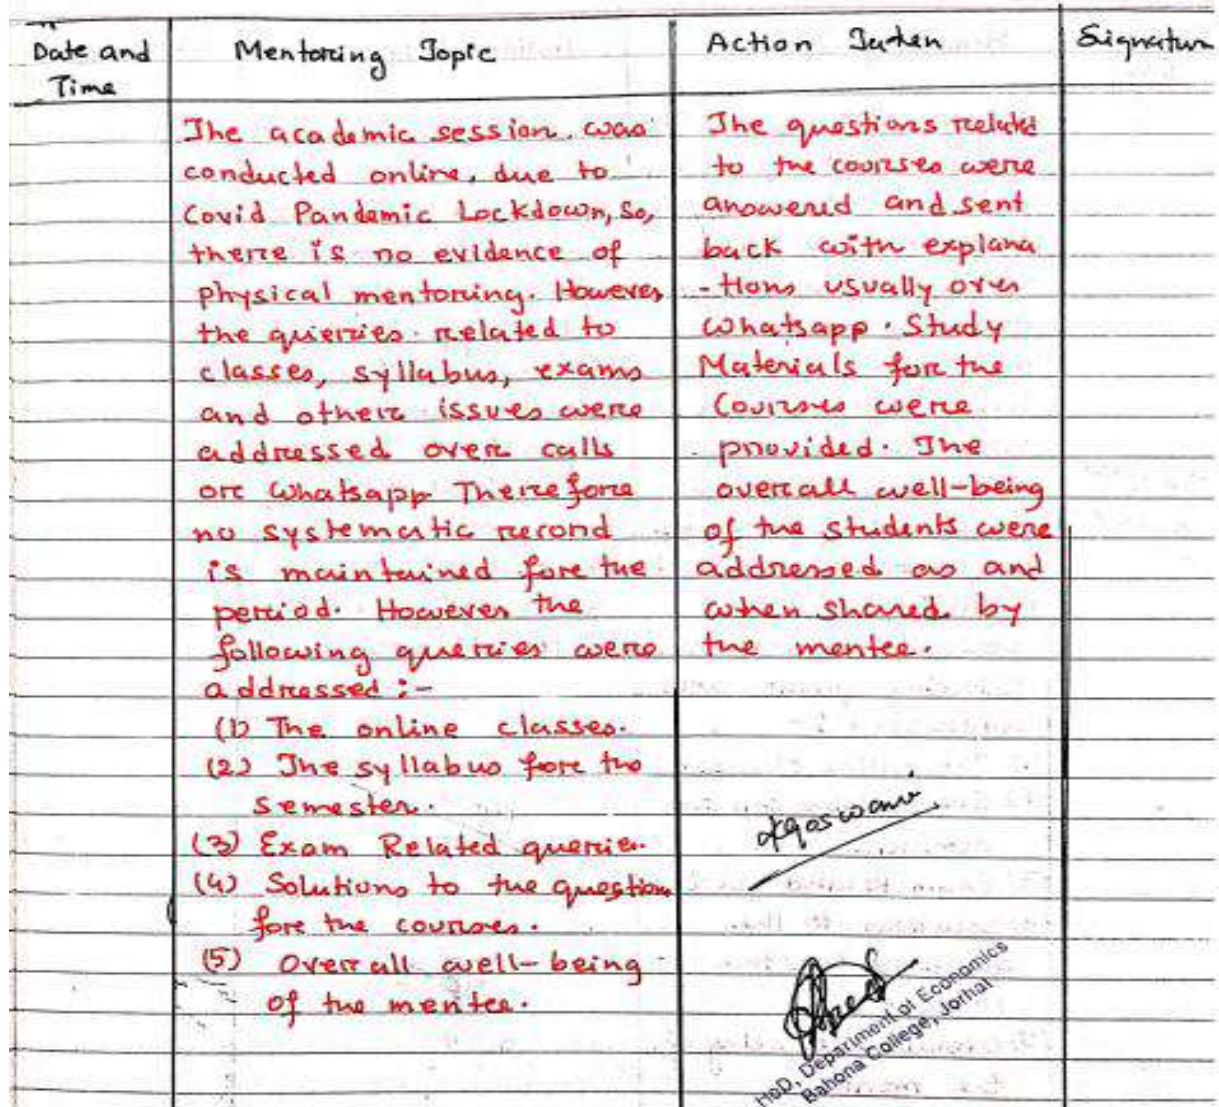 Date and
Time
Mentoring Topic
Action Taken
Signature
The academic session was
conducted online, due to
Covid Pandemic Lockdown, So,
there is no evidence of
physical mentoring. However
the quieries related to
classes, syllabus, exams
and other issues were
addressed over calls
or Whatsapp Therefore
no systematic record
is maintained for the
period. However the
following queries were
addressed :-
(1) The online classes.
(2) The syllabus for the
semester.
(3) Exam Related querie.
(4) Solutions to the question
for the courses.
(5) Overall well-being
of the mentee.
The questions related
to the courses were
answered and sent
back with explana
-tions usually over
Whatsapp. Study
Materials for the
Courses were
provided. The
overall well-being
of the students were
addressed as and
when shared by
the mentee.
Goswami
HoD, Department of Economics
Bahona College, Jorhat